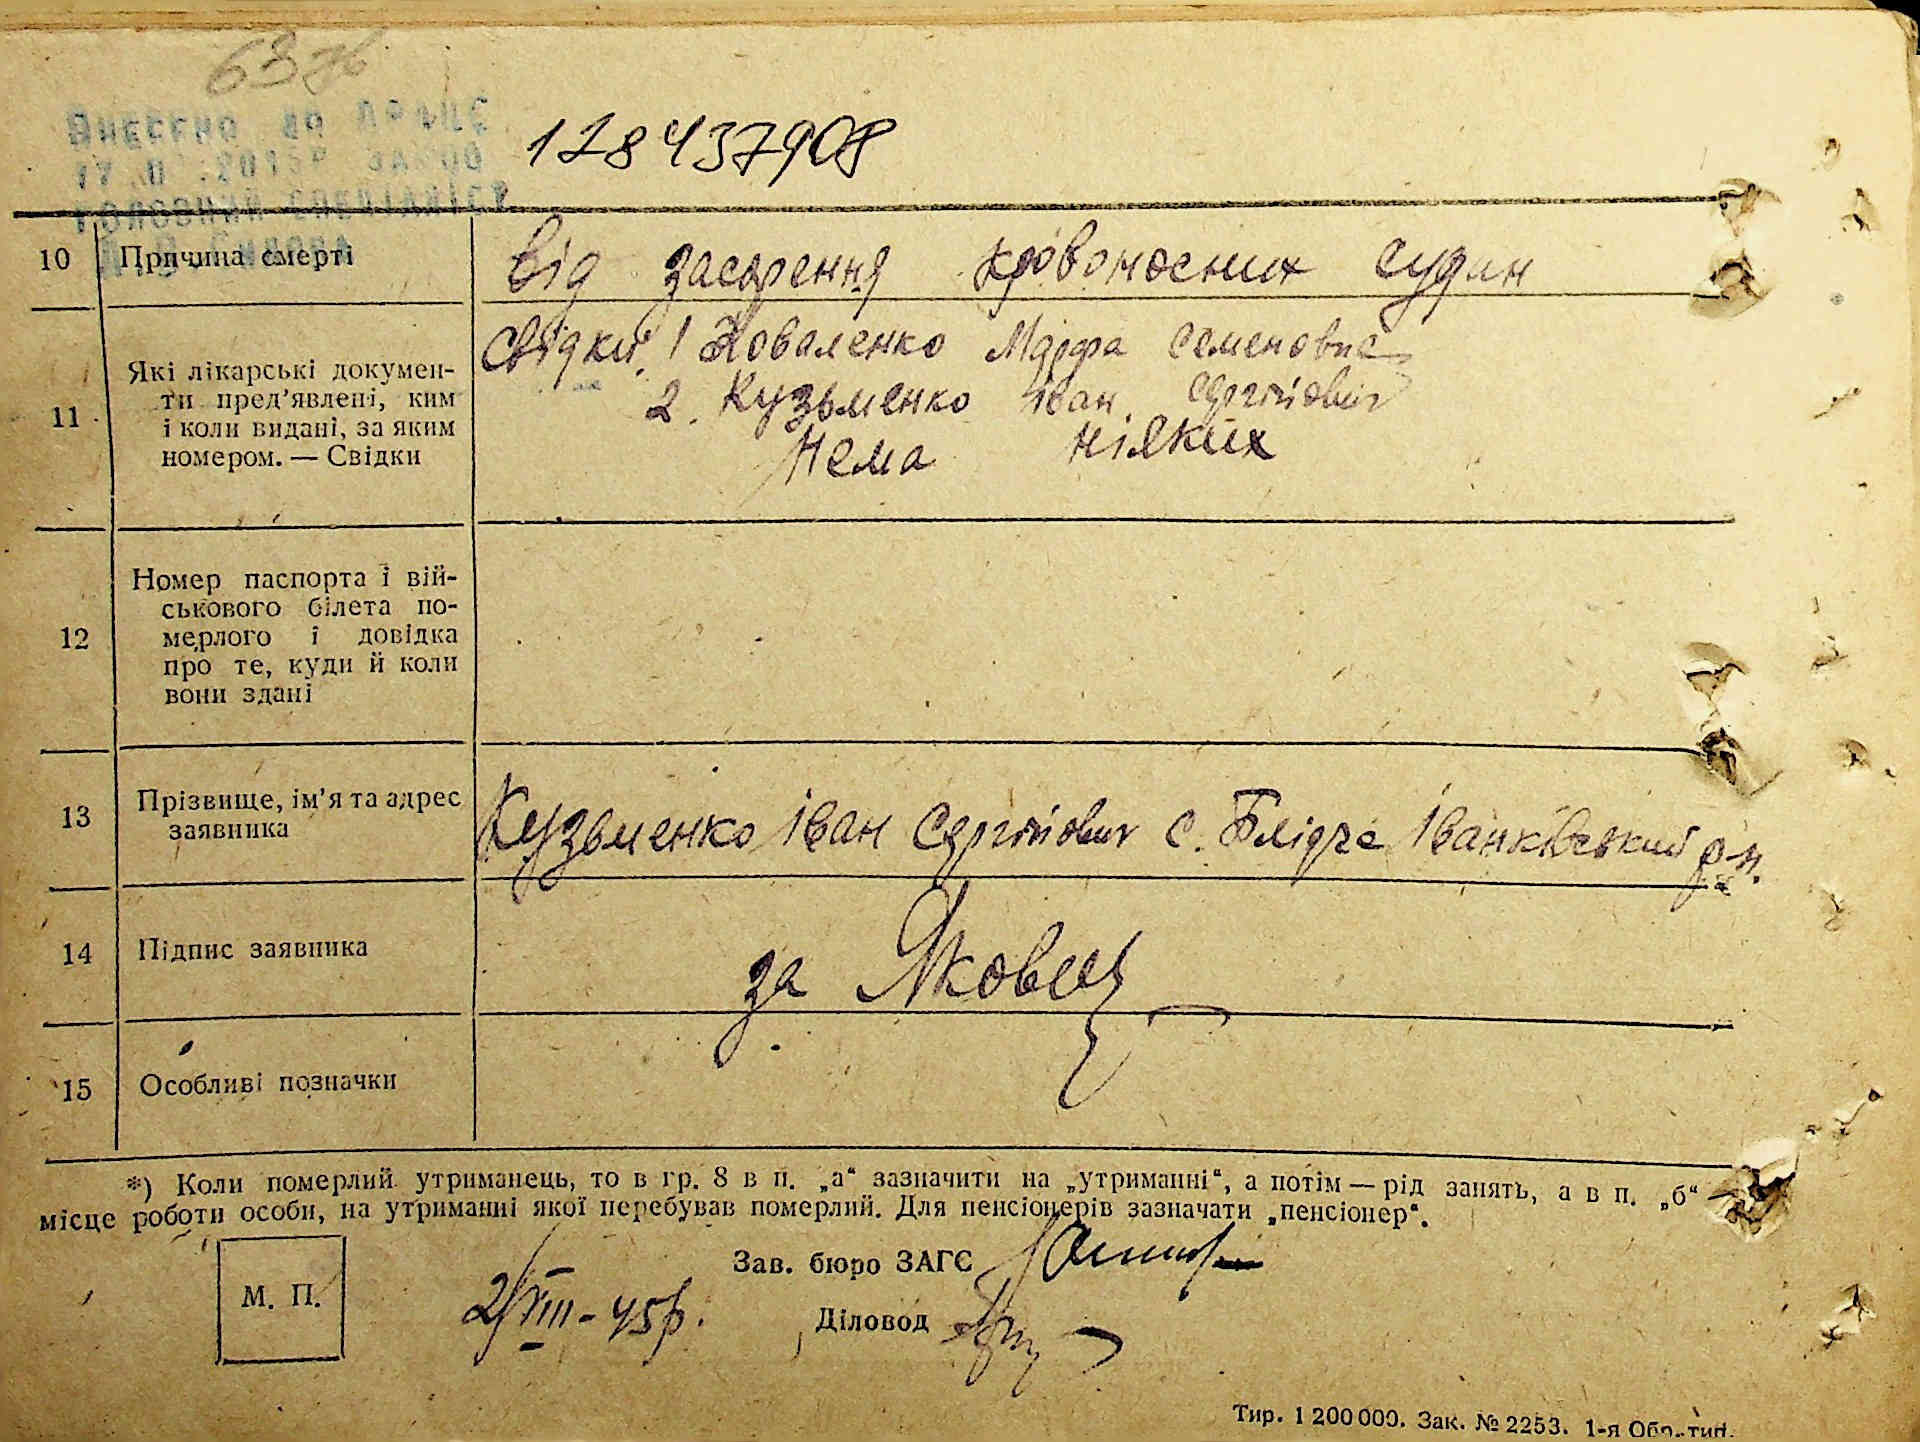 63 зв
Внесено до
178437908
10 Причина смерті від засорення кровоносних судин
11 Які лікарські докумен-
ти пред’явлені, ким
і коли видані, за яким
номером. — Свідки
Свідки: 1 Коваленко Марфа Семеновна
2. Кузьменко Іван Сергійович
Нема ніяких
12 Номер паспорта і вій-
ськового білета по-
мерлого і довідка
про те, куди й коли
вони здані
13 Прізвище, ім’я та адрес
заявника
Кузьменко Іван Сергійович с. Блідча Іванківський р-н.
14 Підпис заявника за
15 Особливі позначки
*) Коли померлий утриманець, то в гр. 8 в п. „а“ зазначити на „утриманні“, а потім — рід занять, а в п. „б“
місце роботи особи, на утриманні якої перебував померлий. Для пенсіонерів зазначати „пенсіонер“.
Зав. бюро ЗАГС
М. П.
2/VIII - 45р.
Діловод
Тир. 1 200 000. Зак. № 2253. 1-я Обр. тип.